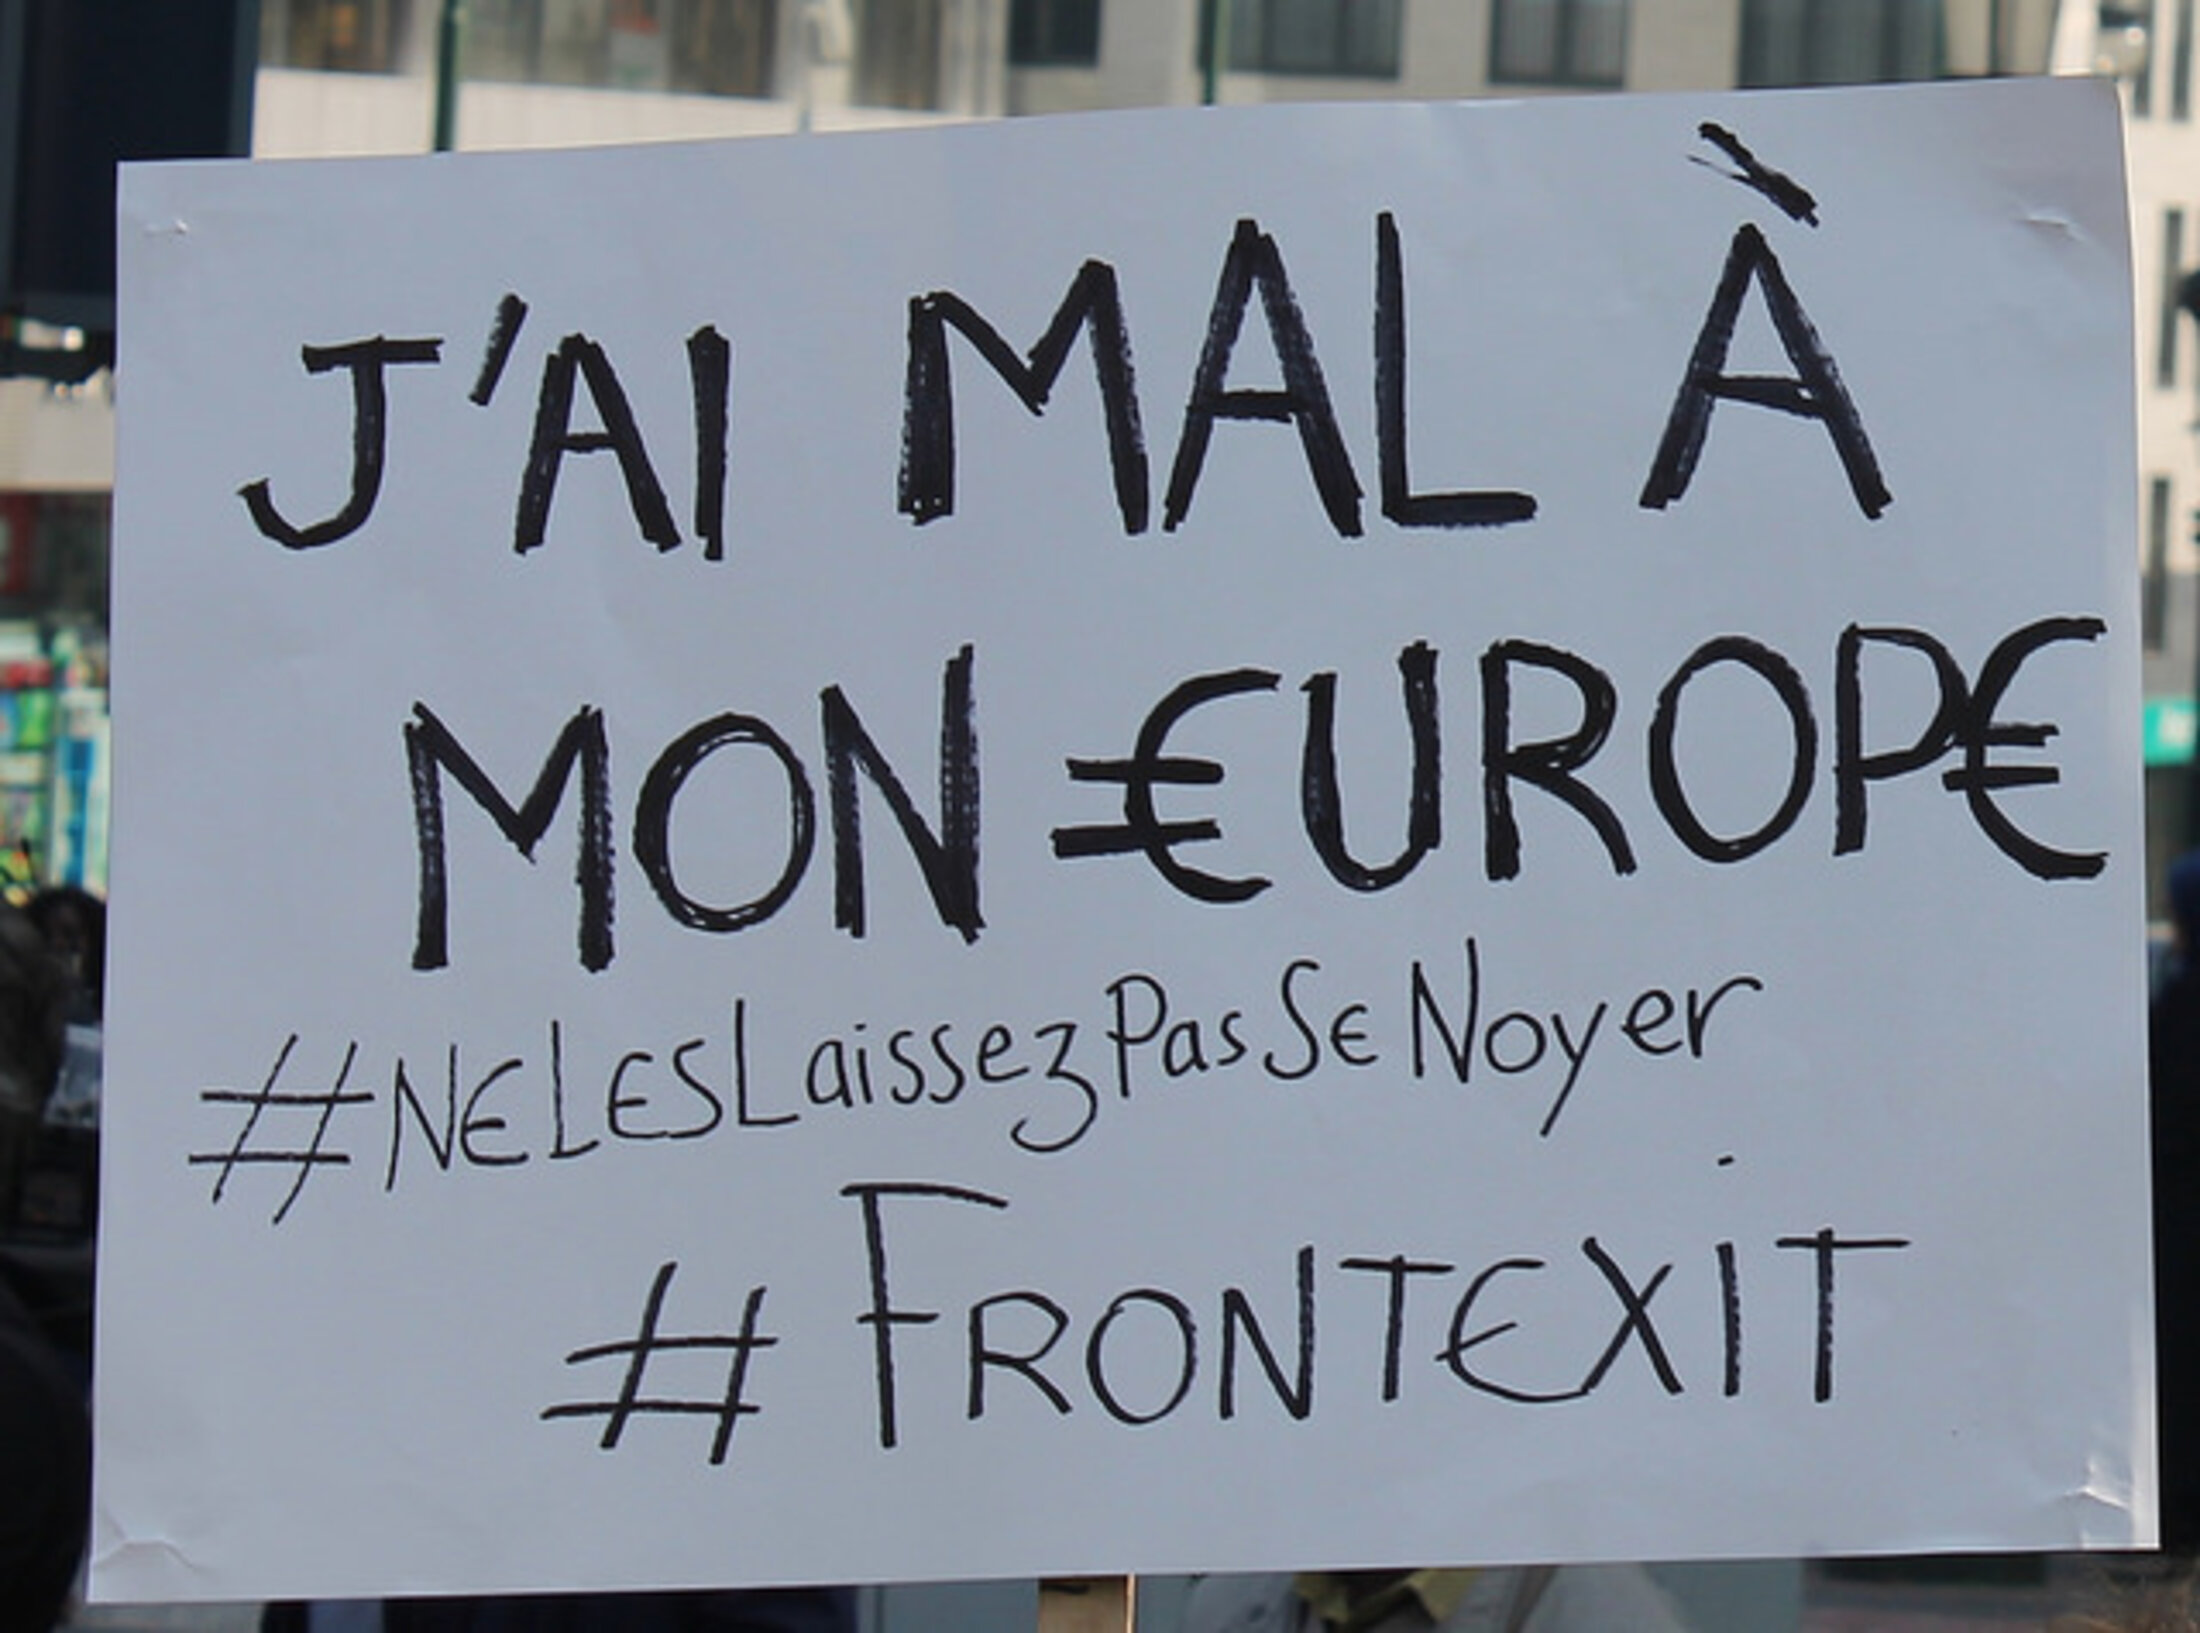 J'AI MAL À
MON €UROP€
#NELESLaissezPasSeNoyer
#FRONTEXiT